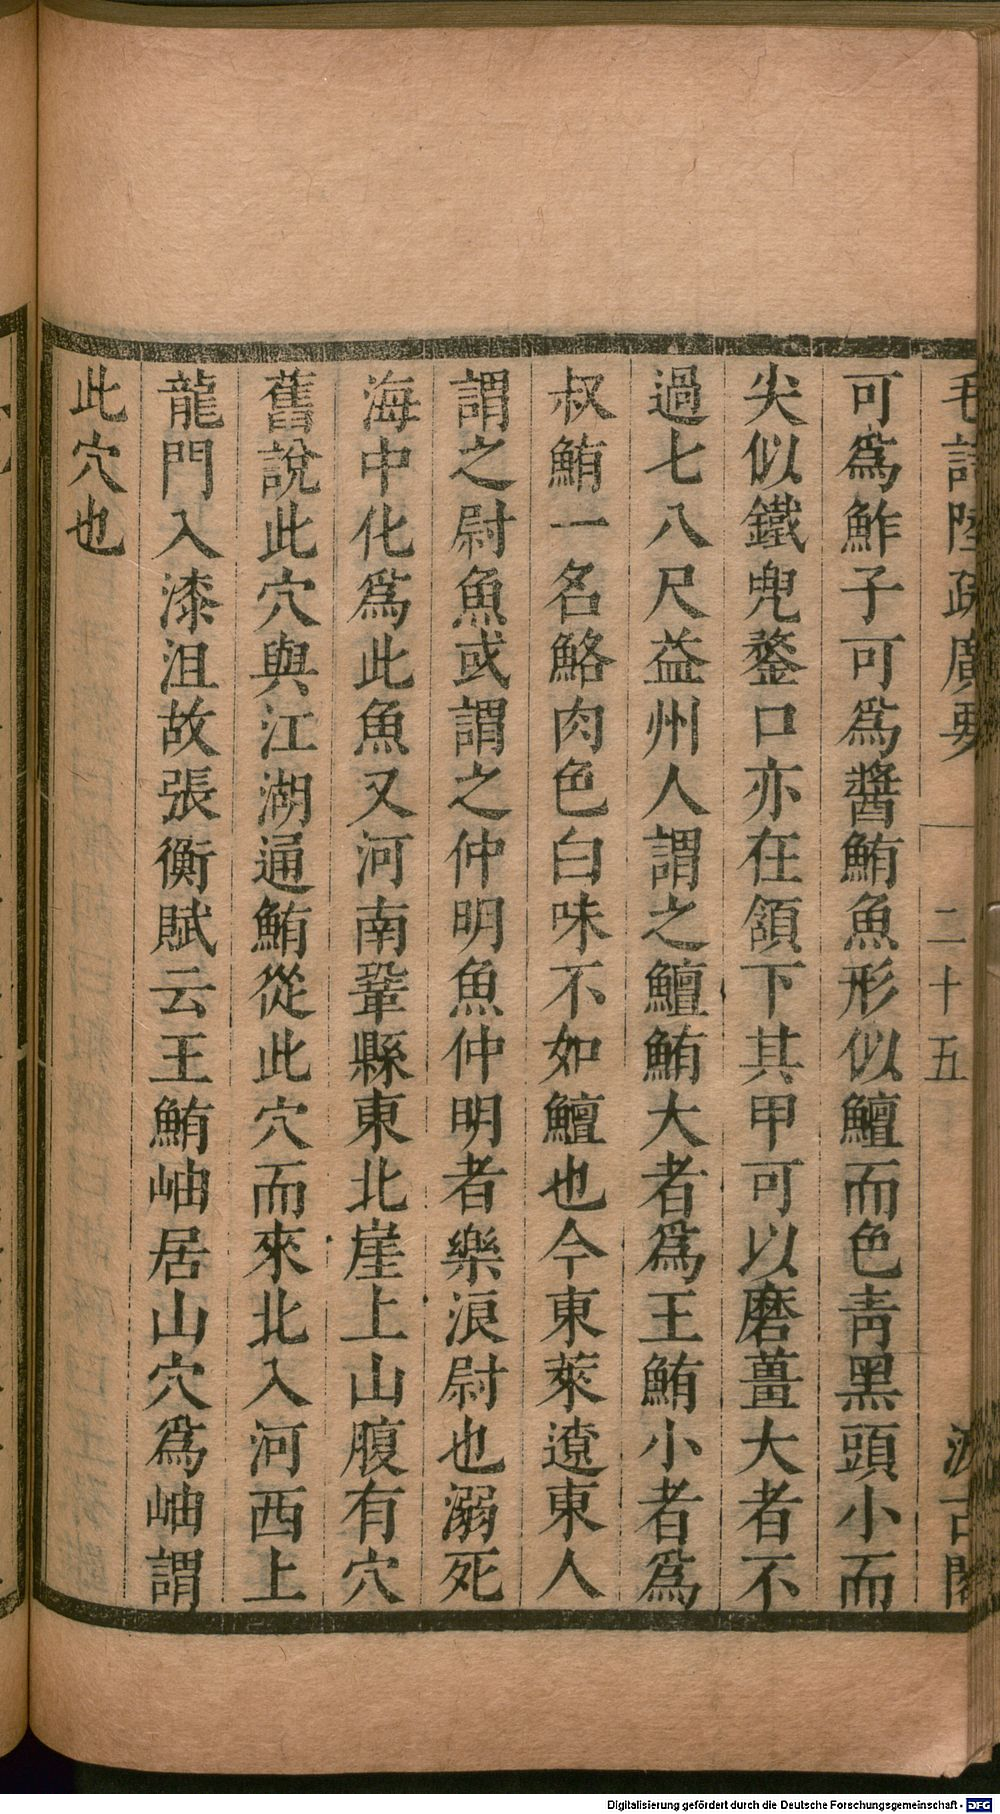 毛詩陸疏廣要 二十五 汲古閣
可爲鮓子可爲醬鮪魚形似鱣而色靑黑頭小而
尖似鐵兜鍪口亦在頷下其甲可以磨薑大者不
過七八尺益州人謂之鱣鮪大者爲王鮪小者爲
叔鮪一名鮥肉色白味不如鱣也今東萊遼東人
謂之尉魚或謂之仲明魚仲明者樂浪尉也溺死
海中化爲此魚又河南鞏縣東北崖上山腹有穴
舊說此穴與江湖通鮪從此穴而來北入河西上
龍門入漆沮故張衡賦云王鮪岫居山穴爲岫謂
此穴也
Digitalisierung gefördert durch die Deutsche Forschungsgemeinschaft - DFG